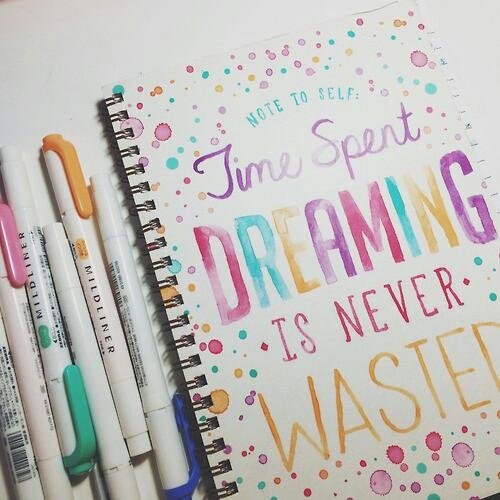 NOTE TO SELF:
Time Spent
DREAMING
IS NEVER
WASTED
MILDLINER
MILDLINER